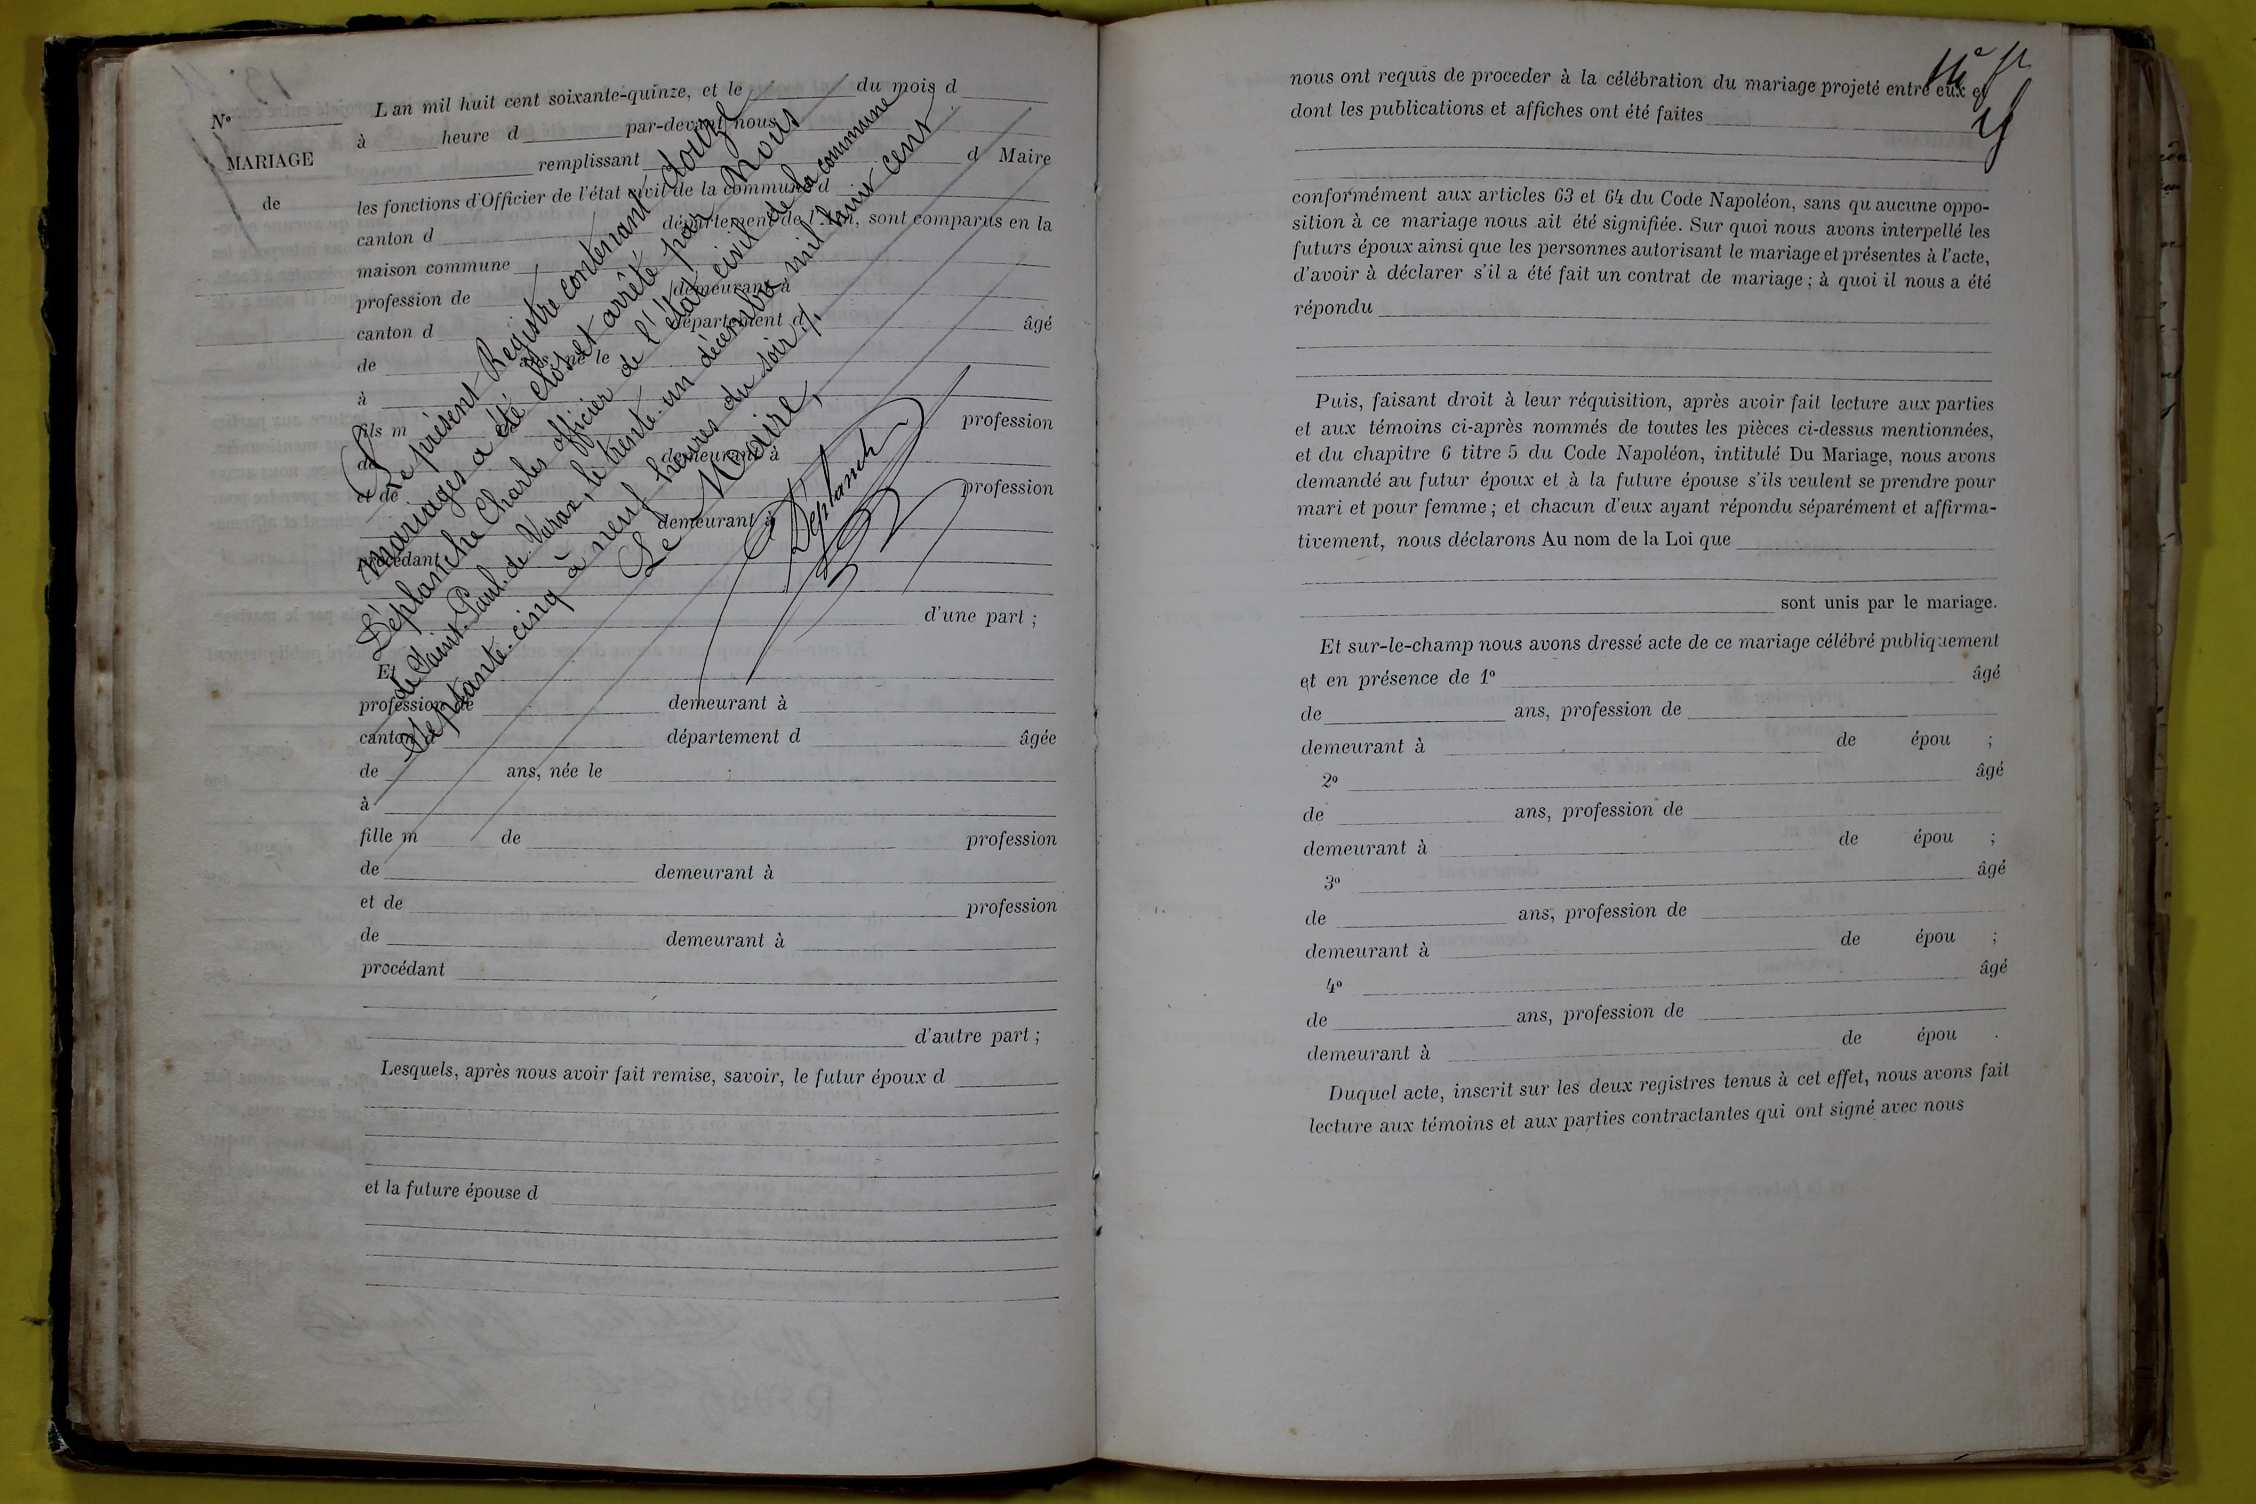 Nº
MARIAGE
de
L'an mil huit cent soixante-quinze, et le du mois d
à heure d par-devant nous
remplissant d Maire
les fonctions d'Officier de l'état civil de la commune d
canton d département de l'Ain, sont comparus en la
maison commune
profession de demeurant à
canton d département d âgé
de ans, né le
à
fils m profession
de demeurant à
et de profession
demeurant à
procédant
d'une part ;
Et
profession de demeurant à
canton d département d âgée
de ans, née le
à
fille m de profession
de demeurant à
et de profession
de demeurant à
procédant
d'autre part ;
Lesquels, après nous avoir fait remise, savoir, le futur époux d
et la future épouse d
Le présent Registre contenant douze
mariages a été clos et arrêté par Nous
Déplanche Charles officier de l'état civil de la commune
de Saint-Paul-de-Varax, le trente-un décembre mil huit cent
septante-cinq à neuf heures du soir ./.
Le Maire,
Déplanche
nous ont requis de proceder à la célébration du mariage projeté entre eux et
dont les publications et affiches ont été faites
conformément aux articles 63 et 64 du Code Napoléon, sans qu'aucune oppo-
sition à ce mariage nous ait été signifiée. Sur quoi nous avons interpellé les
futurs époux ainsi que les personnes autorisant le mariage et présentes à l'acte,
d'avoir à déclarer s'il a été fait un contrat de mariage ; à quoi il nous a été
répondu
Puis, faisant droit à leur réquisition, après avoir fait lecture aux parties
et aux témoins ci-après nommés de toutes les pièces ci-dessus mentionnées,
et du chapitre 6 titre 5 du Code Napoléon, intitulé Du Mariage, nous avons
demandé au futur époux et à la future épouse s'ils veulent se prendre pour
mari et pour femme ; et chacun d'eux ayant répondu séparément et affirma-
tivement, nous déclarons Au nom de la Loi que
sont unis par le mariage.
Et sur-le-champ nous avons dressé acte de ce mariage célébré publiquement
et en présence de 1º âgé
de ans, profession de
demeurant à de épou ;
2º âgé
de ans, profession de
demeurant à de épou ;
3º âgé
de ans, profession de
demeurant à de épou ;
4º âgé
de ans, profession de
demeurant à de épou .
Duquel acte, inscrit sur les deux registres tenus à cet effet, nous avons fait
lecture aux témoins et aux parties contractantes qui ont signé avec nous